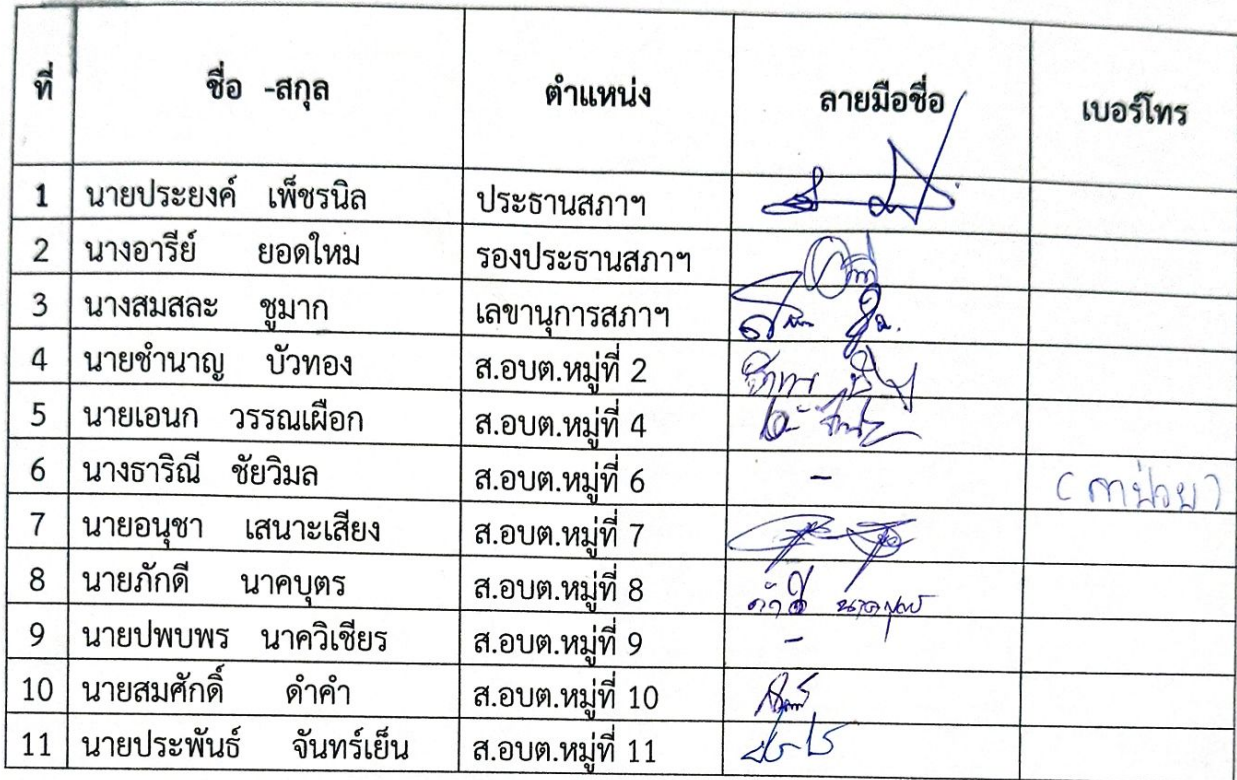 ที่ ชื่อ -สกุล ตำแหน่ง ลายมือชื่อ เบอร์โทร
1 นายประยงค์ เพ็ชรนิล ประธานสภาฯ
2 นางอารีย์ ยอดใหม รองประธานสภาฯ
3 นางสมสละ ชูมาก เลขานุการสภาฯ
4 นายชำนาญ บัวทอง ส.อบต.หมู่ที่ 2
5 นายเอนก วรรณเผือก ส.อบต.หมู่ที่ 4
6 นางธาริณี ชัยวิมล ส.อบต.หมู่ที่ 6 - (ลาป่วย)
7 นายอนุชา เสนาะเสียง ส.อบต.หมู่ที่ 7
8 นายภักดี นาคบุตร ส.อบต.หมู่ที่ 8 ภักดี นาคบุตร
9 นายปพบพร นาควิเชียร ส.อบต.หมู่ที่ 9 -
10 นายสมศักดิ์ ดำคำ ส.อบต.หมู่ที่ 10
11 นายประพันธ์ จันทร์เย็น ส.อบต.หมู่ที่ 11